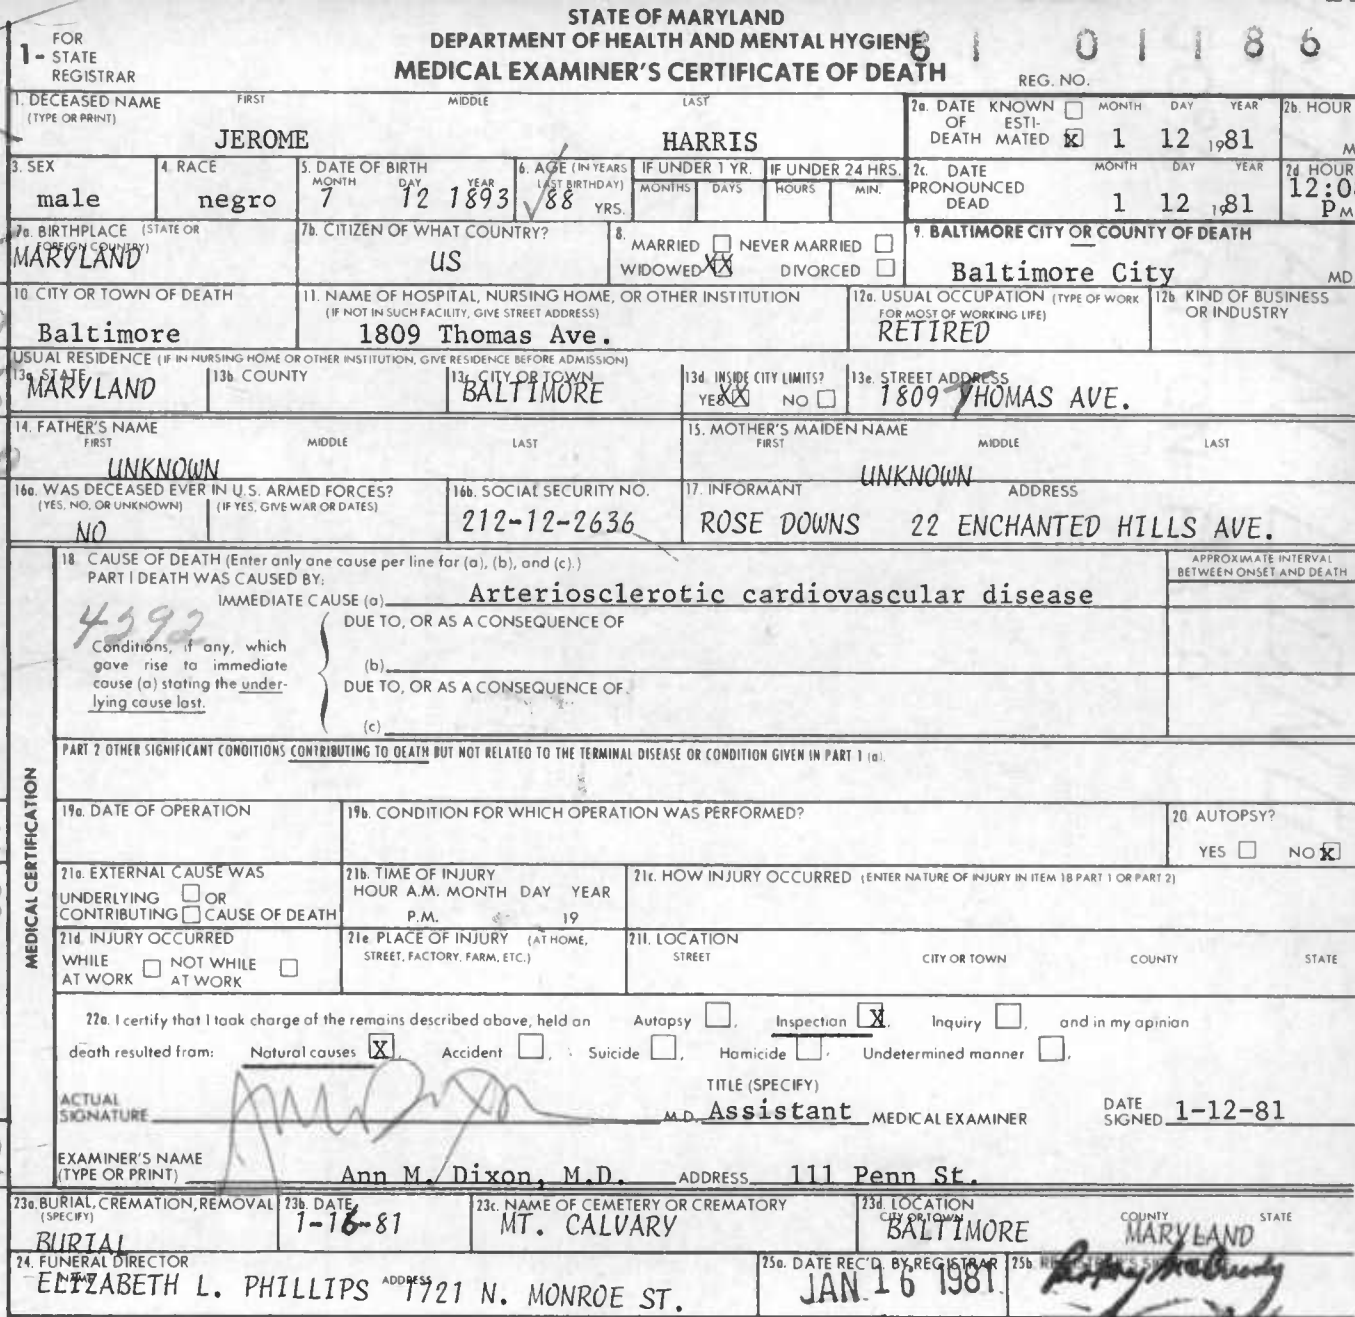 STATE OF MARYLAND
DEPARTMENT OF HEALTH AND MENTAL HYGIENE
MEDICAL EXAMINER'S CERTIFICATE OF DEATH
1- FOR STATE REGISTRAR
81 01186
REG. NO.
1. DECEASED NAME (TYPE OR PRINT) FIRST MIDDLE LAST
JEROME HARRIS
2a. DATE OF DEATH KNOWN ☐ ESTIMATED ☒ MONTH DAY YEAR
1 12 1981
2b. HOUR
M
3. SEX
male
4. RACE
negro
5. DATE OF BIRTH MONTH DAY YEAR
7 12 1893
6. AGE (IN YEARS LAST BIRTHDAY)
88 YRS.
IF UNDER 1 YR. MONTHS DAYS
IF UNDER 24 HRS. HOURS MIN.
2c. DATE PRONOUNCED DEAD MONTH DAY YEAR
1 12 1981
2d HOUR
12:0
P M
7a. BIRTHPLACE (STATE OR FOREIGN COUNTRY)
MARYLAND
7b. CITIZEN OF WHAT COUNTRY?
US
8. MARRIED ☐ NEVER MARRIED ☐
WIDOWED XX DIVORCED ☐
9. BALTIMORE CITY OR COUNTY OF DEATH
Baltimore City MD
10 CITY OR TOWN OF DEATH
Baltimore
11. NAME OF HOSPITAL, NURSING HOME, OR OTHER INSTITUTION
(IF NOT IN SUCH FACILITY, GIVE STREET ADDRESS)
1809 Thomas Ave.
12a. USUAL OCCUPATION (TYPE OF WORK FOR MOST OF WORKING LIFE)
RETIRED
12b KIND OF BUSINESS OR INDUSTRY
USUAL RESIDENCE (IF IN NURSING HOME OR OTHER INSTITUTION, GIVE RESIDENCE BEFORE ADMISSION)
13a STATE
MARYLAND
13b COUNTY
13c CITY OR TOWN
BALTIMORE
13d INSIDE CITY LIMITS?
YES XX NO ☐
13e. STREET ADDRESS
1809 THOMAS AVE.
14. FATHER'S NAME FIRST MIDDLE LAST
UNKNOWN
15. MOTHER'S MAIDEN NAME FIRST MIDDLE LAST
UNKNOWN
16a. WAS DECEASED EVER IN U.S. ARMED FORCES?
(YES, NO, OR UNKNOWN) (IF YES, GIVE WAR OR DATES)
NO
16b. SOCIAL SECURITY NO.
212-12-2636
17. INFORMANT ADDRESS
ROSE DOWNS 22 ENCHANTED HILLS AVE.
MEDICAL CERTIFICATION
18 CAUSE OF DEATH (Enter only one cause per line for (a), (b), and (c).)
PART I DEATH WAS CAUSED BY:
APPROXIMATE INTERVAL BETWEEN ONSET AND DEATH
IMMEDIATE CAUSE (a) Arteriosclerotic cardiovascular disease
4292
DUE TO, OR AS A CONSEQUENCE OF
Conditions, if any, which gave rise to immediate cause (a) stating the underlying cause last.
(b)
DUE TO, OR AS A CONSEQUENCE OF
(c)
PART 2 OTHER SIGNIFICANT CONDITIONS CONTRIBUTING TO DEATH BUT NOT RELATED TO THE TERMINAL DISEASE OR CONDITION GIVEN IN PART 1 (a).
19a. DATE OF OPERATION
19b. CONDITION FOR WHICH OPERATION WAS PERFORMED?
20 AUTOPSY?
YES ☐ NO ☒
21a. EXTERNAL CAUSE WAS
UNDERLYING ☐ OR
CONTRIBUTING ☐ CAUSE OF DEATH
21b. TIME OF INJURY
HOUR A.M. MONTH DAY YEAR
P.M. 19
21c. HOW INJURY OCCURRED (ENTER NATURE OF INJURY IN ITEM 18 PART 1 OR PART 2)
21d INJURY OCCURRED
WHILE AT WORK ☐ NOT WHILE AT WORK ☐
21e PLACE OF INJURY (AT HOME, STREET, FACTORY, FARM, ETC.)
21f. LOCATION
STREET CITY OR TOWN COUNTY STATE
22a. I certify that I took charge of the remains described above, held an Autopsy ☐, Inspection ☒, Inquiry ☐, and in my opinion
death resulted from: Natural causes ☒, Accident ☐, Suicide ☐, Homicide ☐, Undetermined manner ☐.
ACTUAL SIGNATURE M.D.
TITLE (SPECIFY)
Assistant MEDICAL EXAMINER
DATE SIGNED 1-12-81
EXAMINER'S NAME (TYPE OR PRINT) Ann M. Dixon, M.D. ADDRESS 111 Penn St.
23a. BURIAL, CREMATION, REMOVAL (SPECIFY)
BURIAL
23b. DATE
1-16-81
23c. NAME OF CEMETERY OR CREMATORY
MT. CALVARY
23d. LOCATION CITY OR TOWN COUNTY STATE
BALTIMORE MARYLAND
24. FUNERAL DIRECTOR
NAME ELIZABETH L. PHILLIPS ADDRESS 1721 N. MONROE ST.
25a. DATE REC'D. BY REGISTRAR
JAN 16 1981
25b.